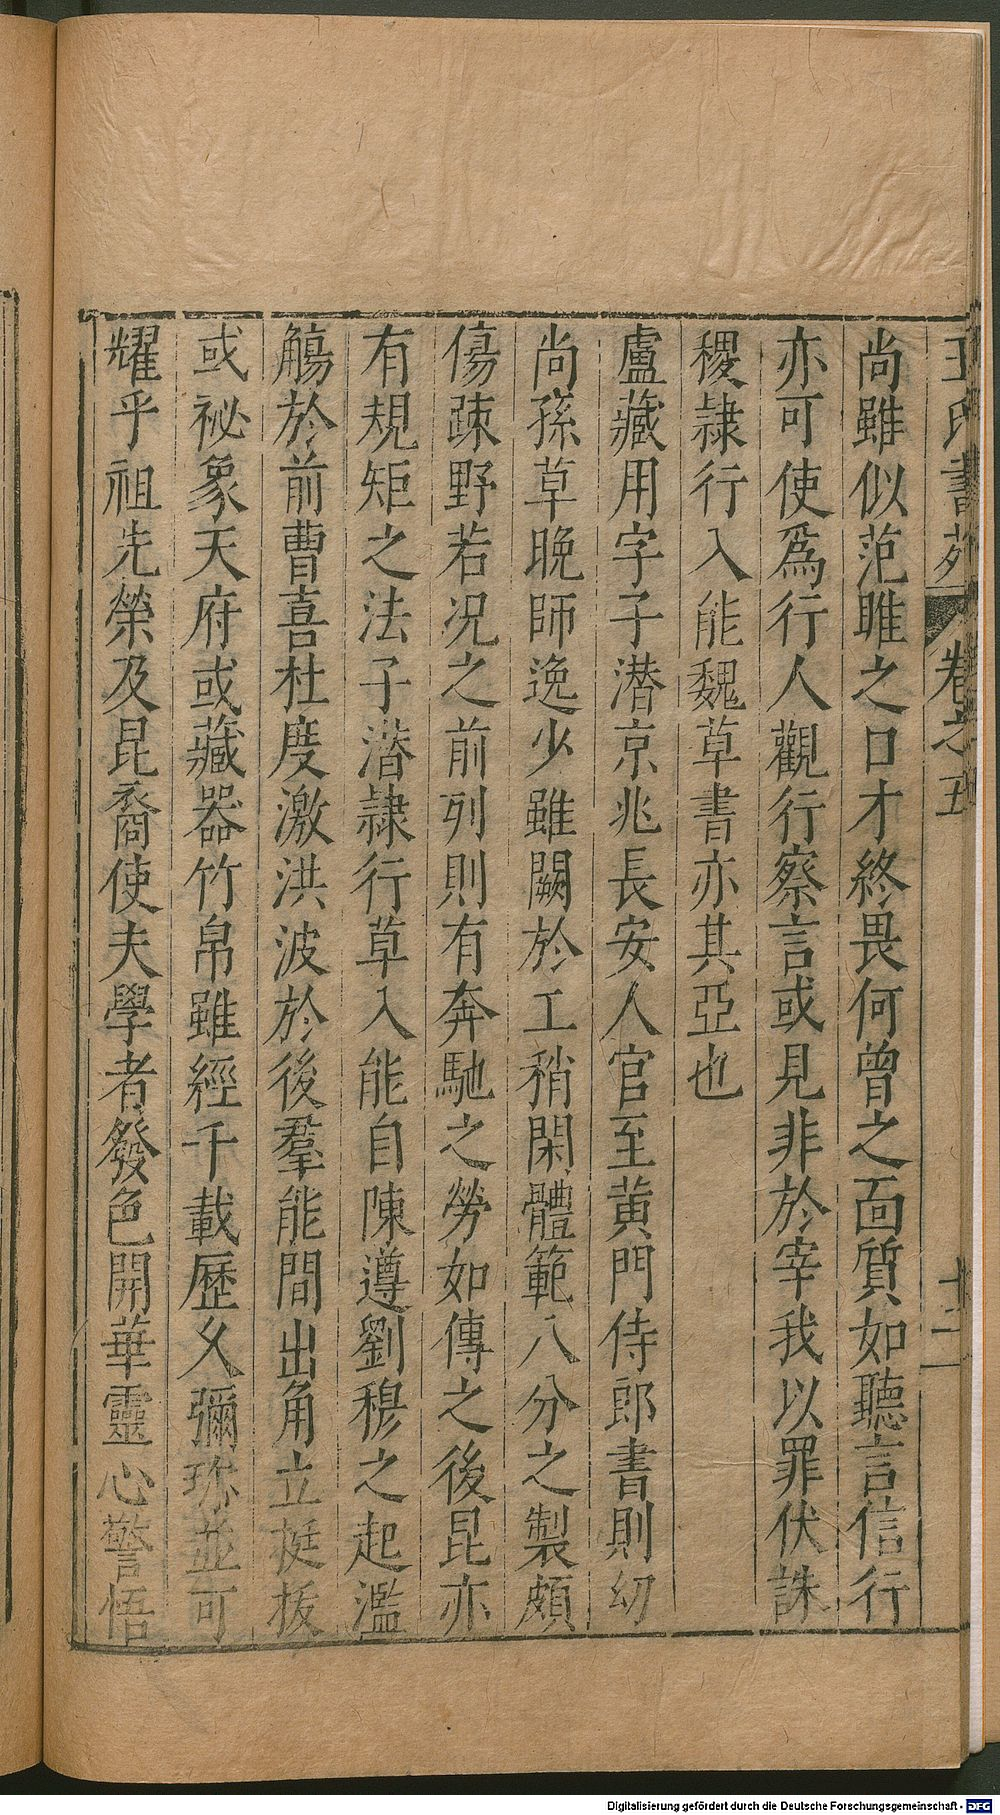 王氏書苑 卷之五 十二
尚雖似范雎之口才終畏何曾之面質如聽言信行
亦可使爲行人觀行察言或見非於宰我以罪伏誅
稷隷行入能魏草書亦其亞也
盧藏用字子潜京兆長安人官至黃門侍郎書則幼
尚孫草晚師逸少雖闕於工稍閑體範八分之製頗
傷疎野若况之前列則有奔馳之勞如傳之後昆亦
有規矩之法子潜隷行草入能自陳遵劉穆之起濫
觴於前曹喜杜度激洪波於後羣能間出角立挺拔
或祕象天府或藏器竹帛雖經千載歷乆彌珎並可
耀乎祖先榮及昆裔使夫學者發色開華靈心警悟
Digitalisierung gefördert durch die Deutsche Forschungsgemeinschaft - DFG